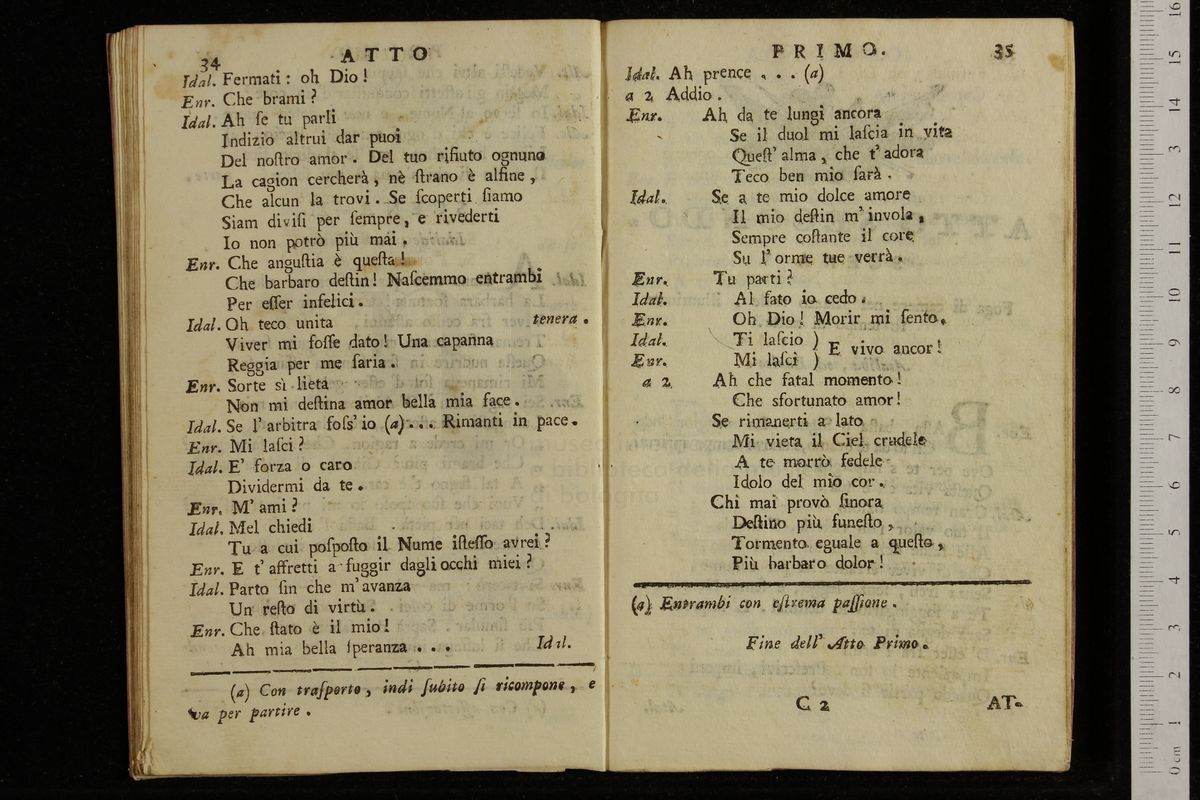 34 ATTO
Idal. Fermati : oh Dio !
Enr. Che brami ?
Idal. Ah ſe tu parli
Indizio altrui dar puoi
Del noſtro amor . Del tuo rifiuto ognuno
La cagion cercherà , nè ſtrano è alfine ,
Che alcun la trovi . Se ſcoperti ſiamo
Siam diviſi per ſempre , e rivederti
Io non potrò più mai .
Enr. Che anguſtia è queſta !
Che barbaro deſtin ! Naſcemmo entrambi
Per eſſer infelici .
Idal. Oh teco unita tenera .
Viver mi foſſe dato ! Una capanna
Reggia per me ſaria .
Enr. Sorte sì lieta
Non mi deſtina amor bella mia face .
Idal. Se l' arbitra foſs' io (a) . . . Rimanti in pace .
Enr. Mi laſci ?
Idal. E' forza o caro
Dividermi da te .
Enr. M' ami ?
Idal. Mel chiedi
Tu a cui poſpoſto il Nume iſteſſo avrei ?
Enr. E t' affretti a fuggir dagli occhi miei ?
Idal. Parto ſin che m' avanza
Un reſto di virtù .
Enr. Che ſtato è il mio !
Ah mia bella ſperanza . . . Idal.
(a) Con traſporto , indi ſubito ſi ricompone , e
va per partire .
PRIMO. 35
Idal. Ah prence . . . (a)
a 2 Addio .
Enr. Ah da te lungi ancora
Se il duol mi laſcia in vita
Queſt' alma , che t' adora
Teco ben mio ſarà .
Idal. Se a te mio dolce amore
Il mio deſtin m' invola ,
Sempre coſtante il core
Su l' orme tue verrà .
Enr. Tu parti ?
Idal. Al fato io cedo .
Enr. Oh Dio ! Morir mi ſento .
Idal. Ti laſcio ) E vivo ancor !
Enr. Mi laſci )
a 2 Ah che fatal momento !
Che sfortunato amor !
Se rimanerti a lato
Mi vieta il Ciel crudele
A te morrò fedele
Idolo del mio cor .
Chi mai provò ſinora
Deſtino più funeſto ,
Tormento eguale a queſto ,
Più barbaro dolor !
(a) Entrambi con eſtrema paſſione .
Fine dell' Atto Primo .
C 2 AT-